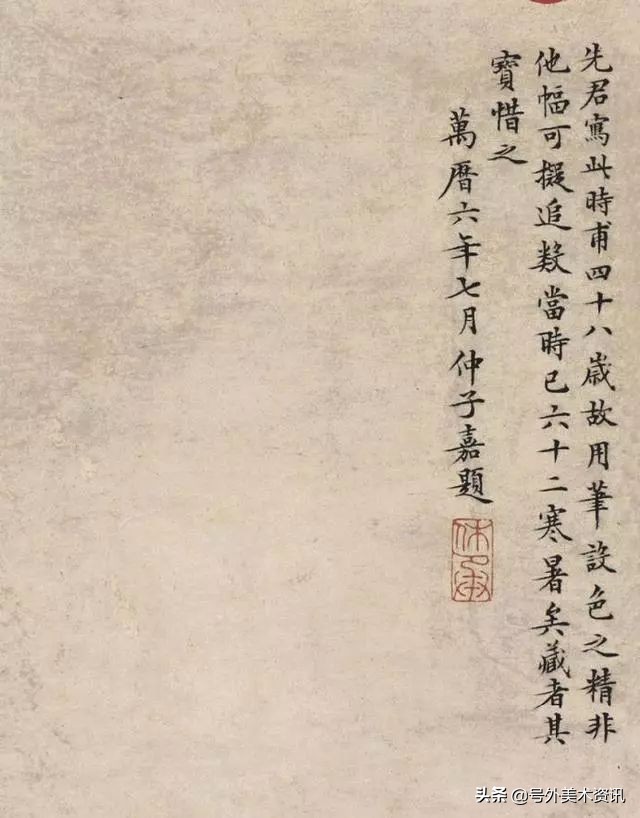 先君寫此時甫四十八歲故用筆設色之精非
他幅可擬追數當時已六十二寒暑矣藏者其
寶惜之
萬曆六年七月仲子嘉題
休承
头条 @号外美术资讯